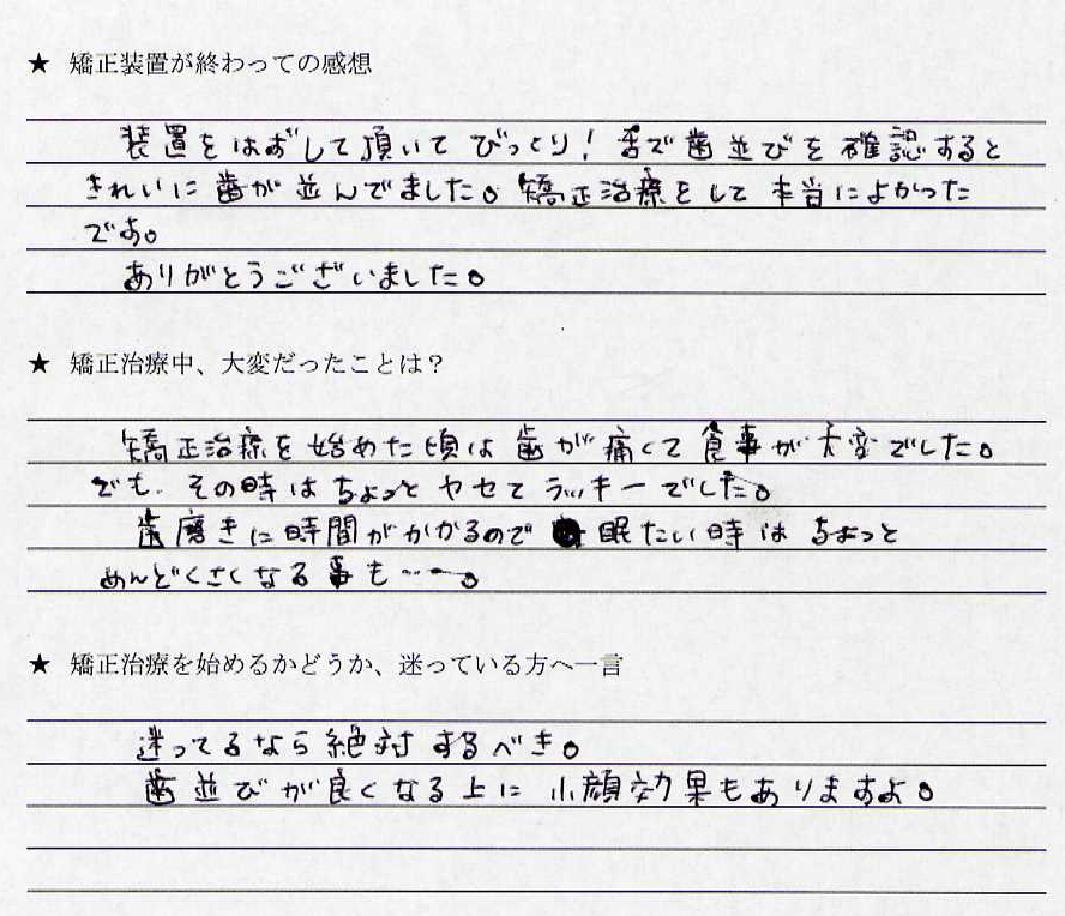 ★ 矯正装置が終わっての感想
装置をはずして頂いてびっくり！舌で歯並びを確認すると
きれいに歯が並んでました。矯正治療をして本当によかった
です。
ありがとうございました。
★ 矯正治療中、大変だったことは？
矯正治療を始めた頃は歯が痛くて食事が大変でした。
でも、その時はちょっとヤセてラッキーでした。
歯磨きに時間がかかるので眠たい時はちょっと
めんどくさくなる事も……。
★ 矯正治療を始めるかどうか、迷っている方へ一言
迷ってるなら絶対するべき。
歯並びが良くなる上に小顔効果もありますよ。